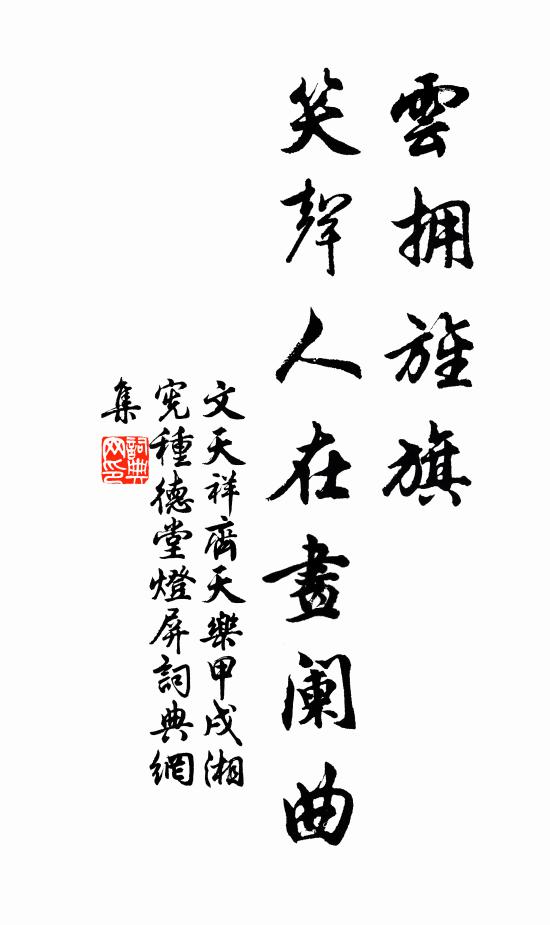 雲拥旌旗
笑聲人在畫阑曲
文天祥齊天樂甲戌湘
宪種德堂燈屏詞典網
集
詞典網印